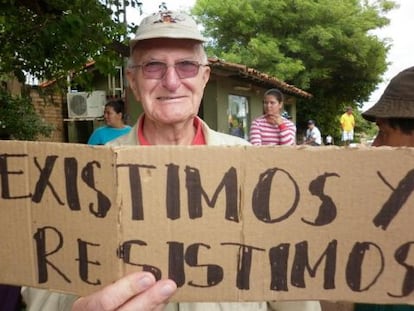 EXISTIMOS Y
RESISTIMOS